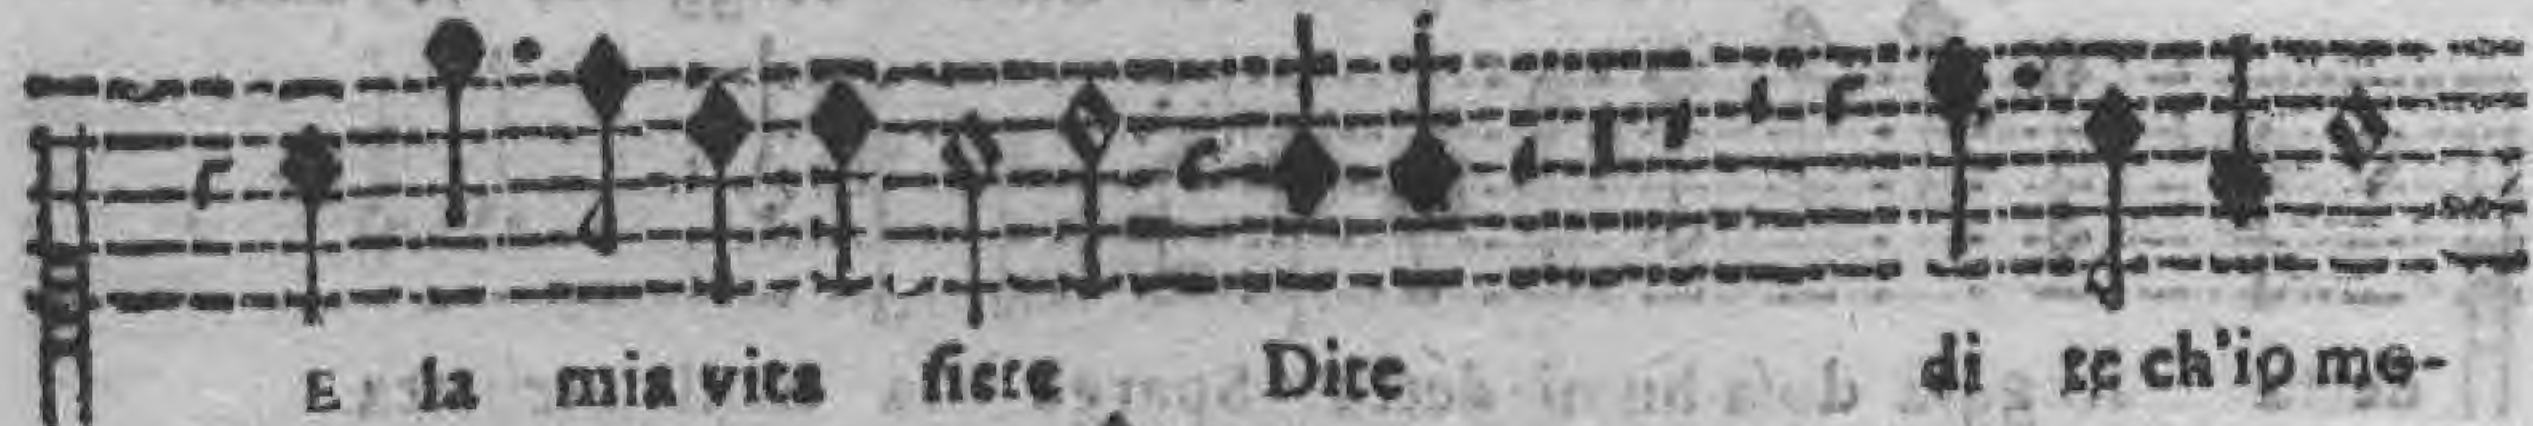 E la mia vita siete Dite di te ch'io mo-